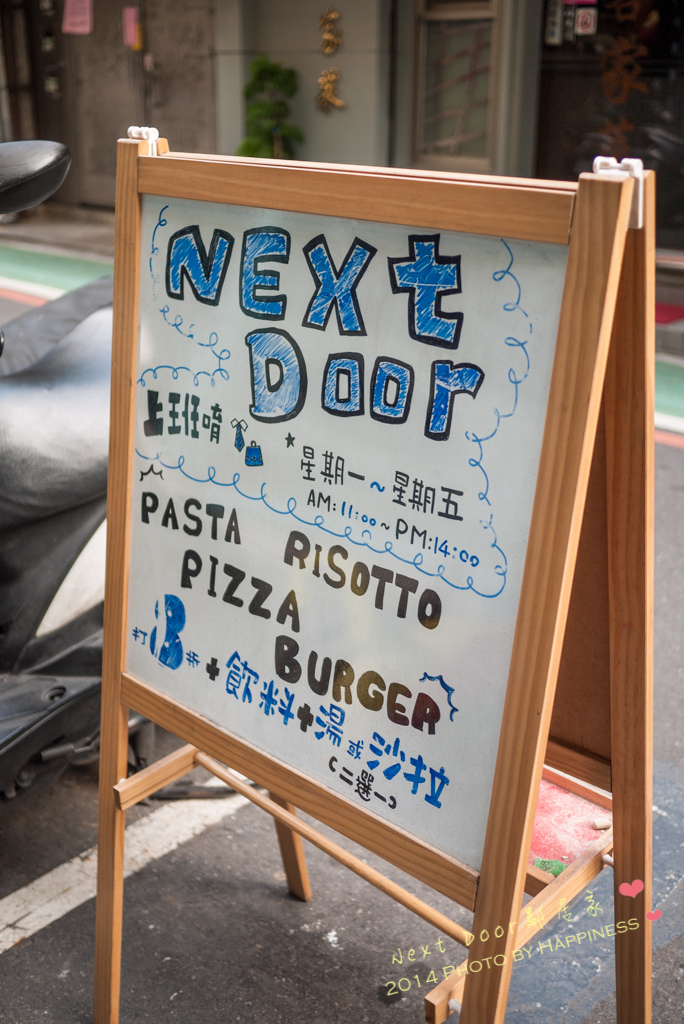 NEXt
Door
上班唷
星期一~星期五
AM:11:00~PM:14:00
PASTA
RISOTTO
PIZZA
BURGER
打8折+飲料+湯或沙拉
(二選一)
Next Door鄰居家
2014 PHOTO BY HAPPINESS